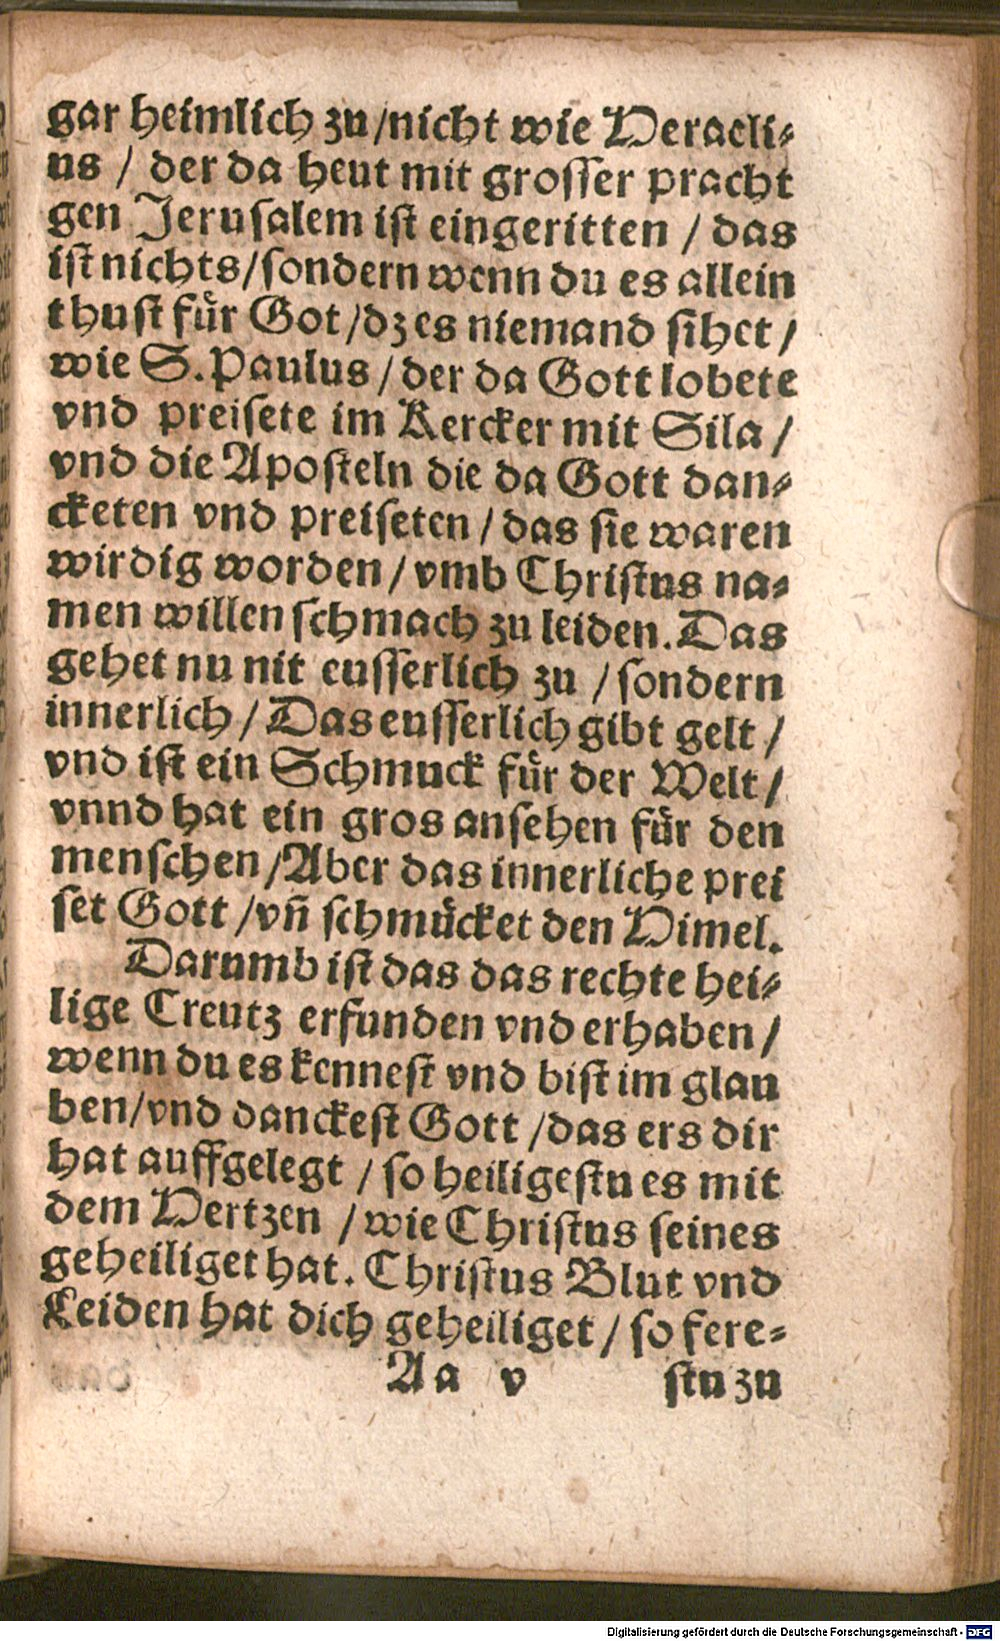 gar heimlich zu/nicht wie Heracli⸗
us / der da heut mit grosser pracht
gen Jerusalem ist eingeritten / das
ist nichts/sondern wenn du es allein
thust fuͤr Got/dz es niemand sihet/
wie S. Paulus/der da Gott lobete
vnd preisete im Kercker mit Sila/
vnd die Aposteln die da Gott dan⸗
cketen vnd preiseten/das sie waren
wirdig worden/vmb Christus na⸗
men willen schmach zu leiden. Das
gehet nu nit eusserlich zu /sondern
innerlich/Das eusserlich gibt gelt/
vnd ist ein Schmuck fuͤr der Welt/
vnnd hat ein gros ansehen fuͤr den
menschen/Aber das innerliche prei
set Gott/vn̄ schmuͤcket den Himel.
Darumb ist das das rechte hei⸗
lige Creutz erfunden vnd erhaben/
wenn du es kennest vnd bist im glau
ben/vnd danckest Gott/das ers dir
hat auffgelegt /so heiligestu es mit
dem Hertzen /wie Christus seines
geheiliget hat. Christus Blut vnd
Leiden hat dich geheiliget/so fere⸗
Aa v stu zu
Digitalisierung gefördert durch die Deutsche Forschungsgemeinschaft - DFG